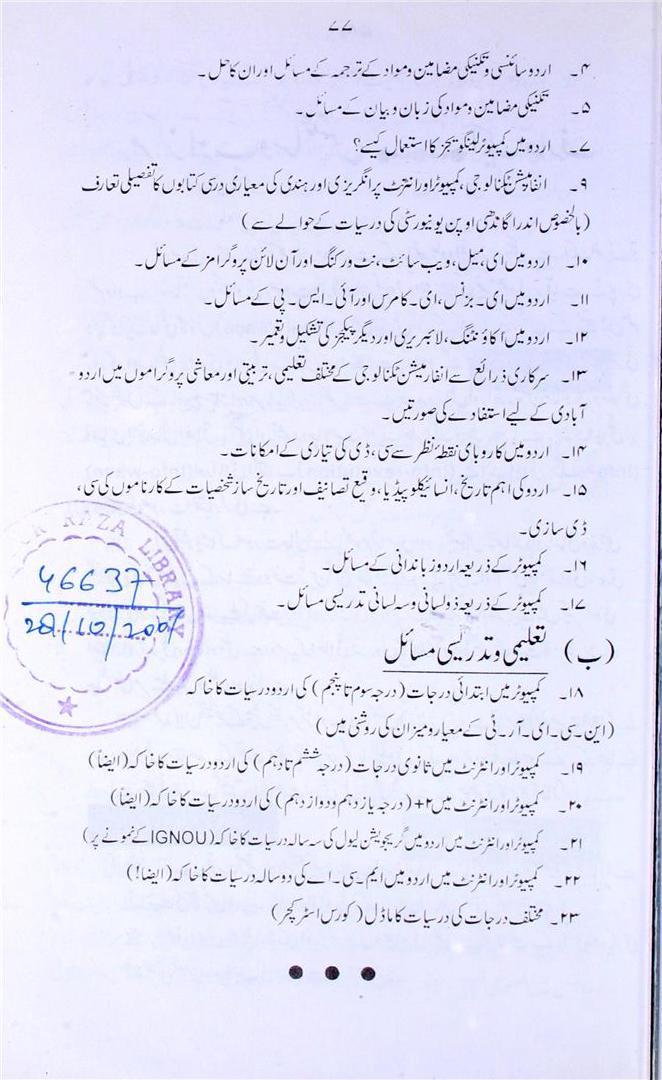 ۷۷
۴۔ اردو سائنسی و تکنیکی مضامین و مواد کے ترجمہ کے مسائل اور ان کا حل۔
۵۔ تکنیکی مضامین و مواد کی زبان و بیان کے مسائل۔
۷۔ اردو میں کمپیوٹر لینگویجز کا استعمال کیسے؟
۹۔ انفارمیشن ٹکنالوجی، کمپیوٹر اور انٹرنٹ پر انگریزی اور ہندی کی معیاری درسی کتابوں کا تفصیلی تعارف
(بالخصوص اندرا گاندھی اوپن یونیورسٹی کی درسیات کے حوالے سے)
۱۰۔ اردو میں ای، میل، ویب سائٹ، نٹ ورکنگ اور آن لائن پروگرامز کے مسائل۔
۱۱۔ اردو میں ای۔ بزنس، ای۔ کامرس اور آئی۔ ایس۔ پی کے مسائل۔
۱۲۔ اردو میں اکاؤنٹنگ، لائبریری اور دیگر پیکجز کی تشکیل و تعمیر۔
۱۳۔ سرکاری ذرائع سے انفارمیشن ٹکنالوجی کے مختلف تعلیمی، تربیتی اور معاشی پروگراموں میں اردو۔
آبادی کے لیے استفادے کی صورتیں۔
۱۴۔ اردو میں کاروباری نقطۂ نظر سے سی، ڈی کی تیاری کے امکانات۔
۱۵۔ اردو کی اہم تاریخ، انسائیکلوپیڈیا، وقیع تصانیف اور تاریخ ساز شخصیات کے کارناموں کی سی،
ڈی سازی۔
۱۶۔ کمپیوٹر کے ذریعہ اردو زباندانی کے مسائل۔
۱۷۔ کمپیوٹر کے ذریعہ ذولسانی و سہ لسانی تدریسی مسائل۔
RAZA LIBRARY
46637
28/10/2007
(ب) تعلیمی و تدریسی مسائل
۱۸۔ کمپیوٹر میں ابتدائی درجات (درجہ سوم تا پنجم) کی اردو درسیات کا خاکہ
(این۔سی۔ای۔آر۔ٹی کے معیار و میزان کی روشنی میں)
۱۹۔ کمپیوٹر اور انٹرنٹ میں ثانوی درجات (درجہ ششم تا دہم) کی اردو درسیات کا خاکہ (ایضاً)
۲۰۔ کمپیوٹر اور انٹرنٹ میں ۲+ (درجہ یازدہم و دوازدہم) کی اردو درسیات کا خاکہ (ایضاً)
۲۱۔ کمپیوٹر اور انٹرنٹ میں اردو میں گریجویشن لیول کی سہ سالہ درسیات کا خاکہ (IGNOU کے نمونے پر)
۲۲۔ کمپیوٹر اور انٹرنٹ میں اردو میں ایم۔سی۔اے کی دو سالہ درسیات کا خاکہ (ایضاً!)
۲۳۔ مختلف درجات کی درسیات کا ماڈل (کورس اسٹرکچر)